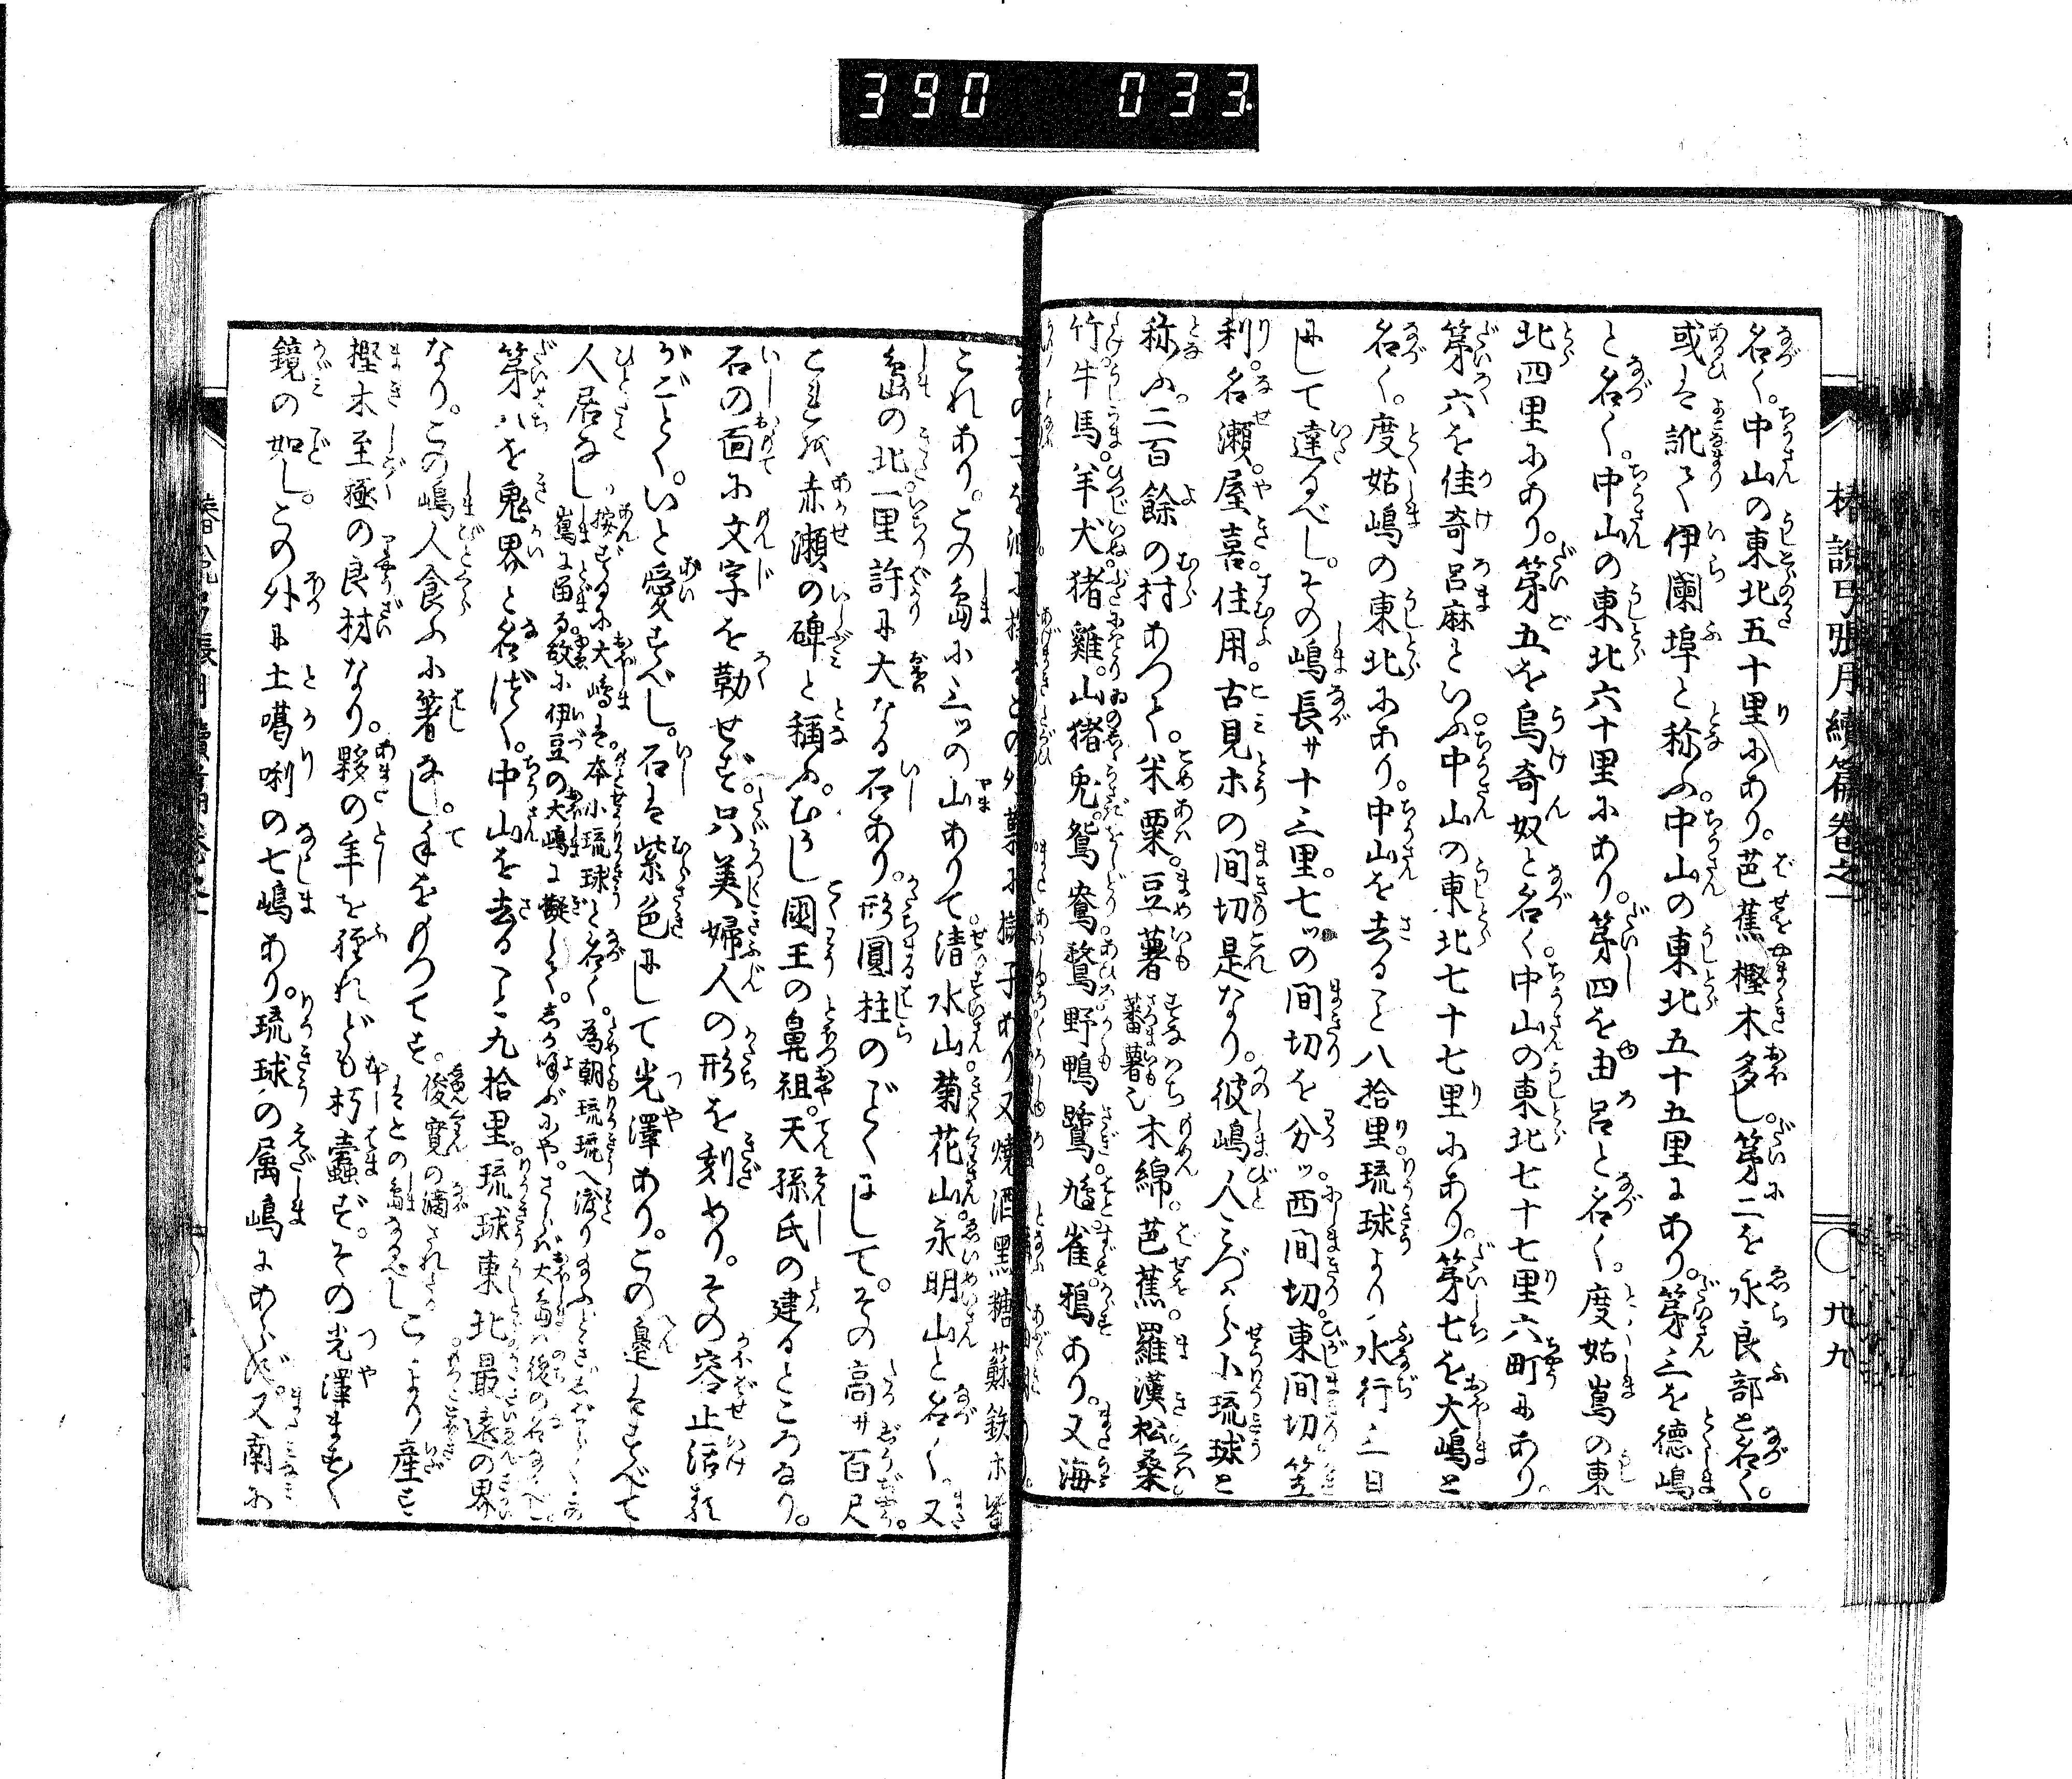 390 033
椿説弓張月續篇卷之一
名く。中山の東北五十里にあり。芭蕉樫木多し。第二を永良部と名く。
或は訛て伊闌埠と称ふ。中山の東北五十五里にあり。第三を徳嶋
と名く。中山の東北六十里にあり。第四を由呂と名く。度姑嶌の東
北四里にあり。第五を烏奇奴と名く。中山の東北七十七里六町にあり。
第六を佳奇呂麻といふ。中山の東北七十七里にあり。第七を大嶋と
名く。度姑嶋の東北にあり。中山を去ること八拾里。琉球より水行三日
にして達るべし。その嶋長サ十三里。七ッの間切を分ッ。西間切。東間切。笠
利。名瀬。屋喜。住用。古見ホの間切是なり。彼嶋人みづから小琉球と
称ふ。二百餘の村あつて。米粟。豆薯 蕃薯 木綿。芭蕉。羅漢松。桑
竹。牛馬。羊犬猪雞。山猪兎。鴛鴦鶩野鴨鷺鳩。雀鴉あり。又海
燒酒黑糖蘇鉄ホ皆
これあり。この島に三ッの山ありて清水山。菊花山。永明山と名く。又
島の北一里許に大なる石あり。形圓柱のごとくにして。その高サ百尺
これを赤瀬の碑と稱ふ。むかし國王の鼻祖。天孫氏の建るところなり。
石の面に文字を勒せず。只美婦人の形を刻めり。その容止活る
がごとく。いと愛すべし。石は紫色にして光澤あり。この邊はすべて
人居なし 按ずるに大嶋は。本小琉球と名く。為朝琉球へ渡り
嶌に留る故に伊豆の大嶋に擬して。しか呼ぶにや。さらば大島は後の名なるべし。
第八を鬼界と名づく。中山を去ること九拾里。琉球東北最遠の界
なり。この嶋人食ふに箸なし。手をもつてす。俊寛の謫されしはこの島なるべし こゝより産す
樫木至極の良材なり。夥の年を經れども朽蠹ず。その光澤まつたく
鏡の如し。この外に土噶喇の七嶋あり。琉球の属嶋にあらず。又南に